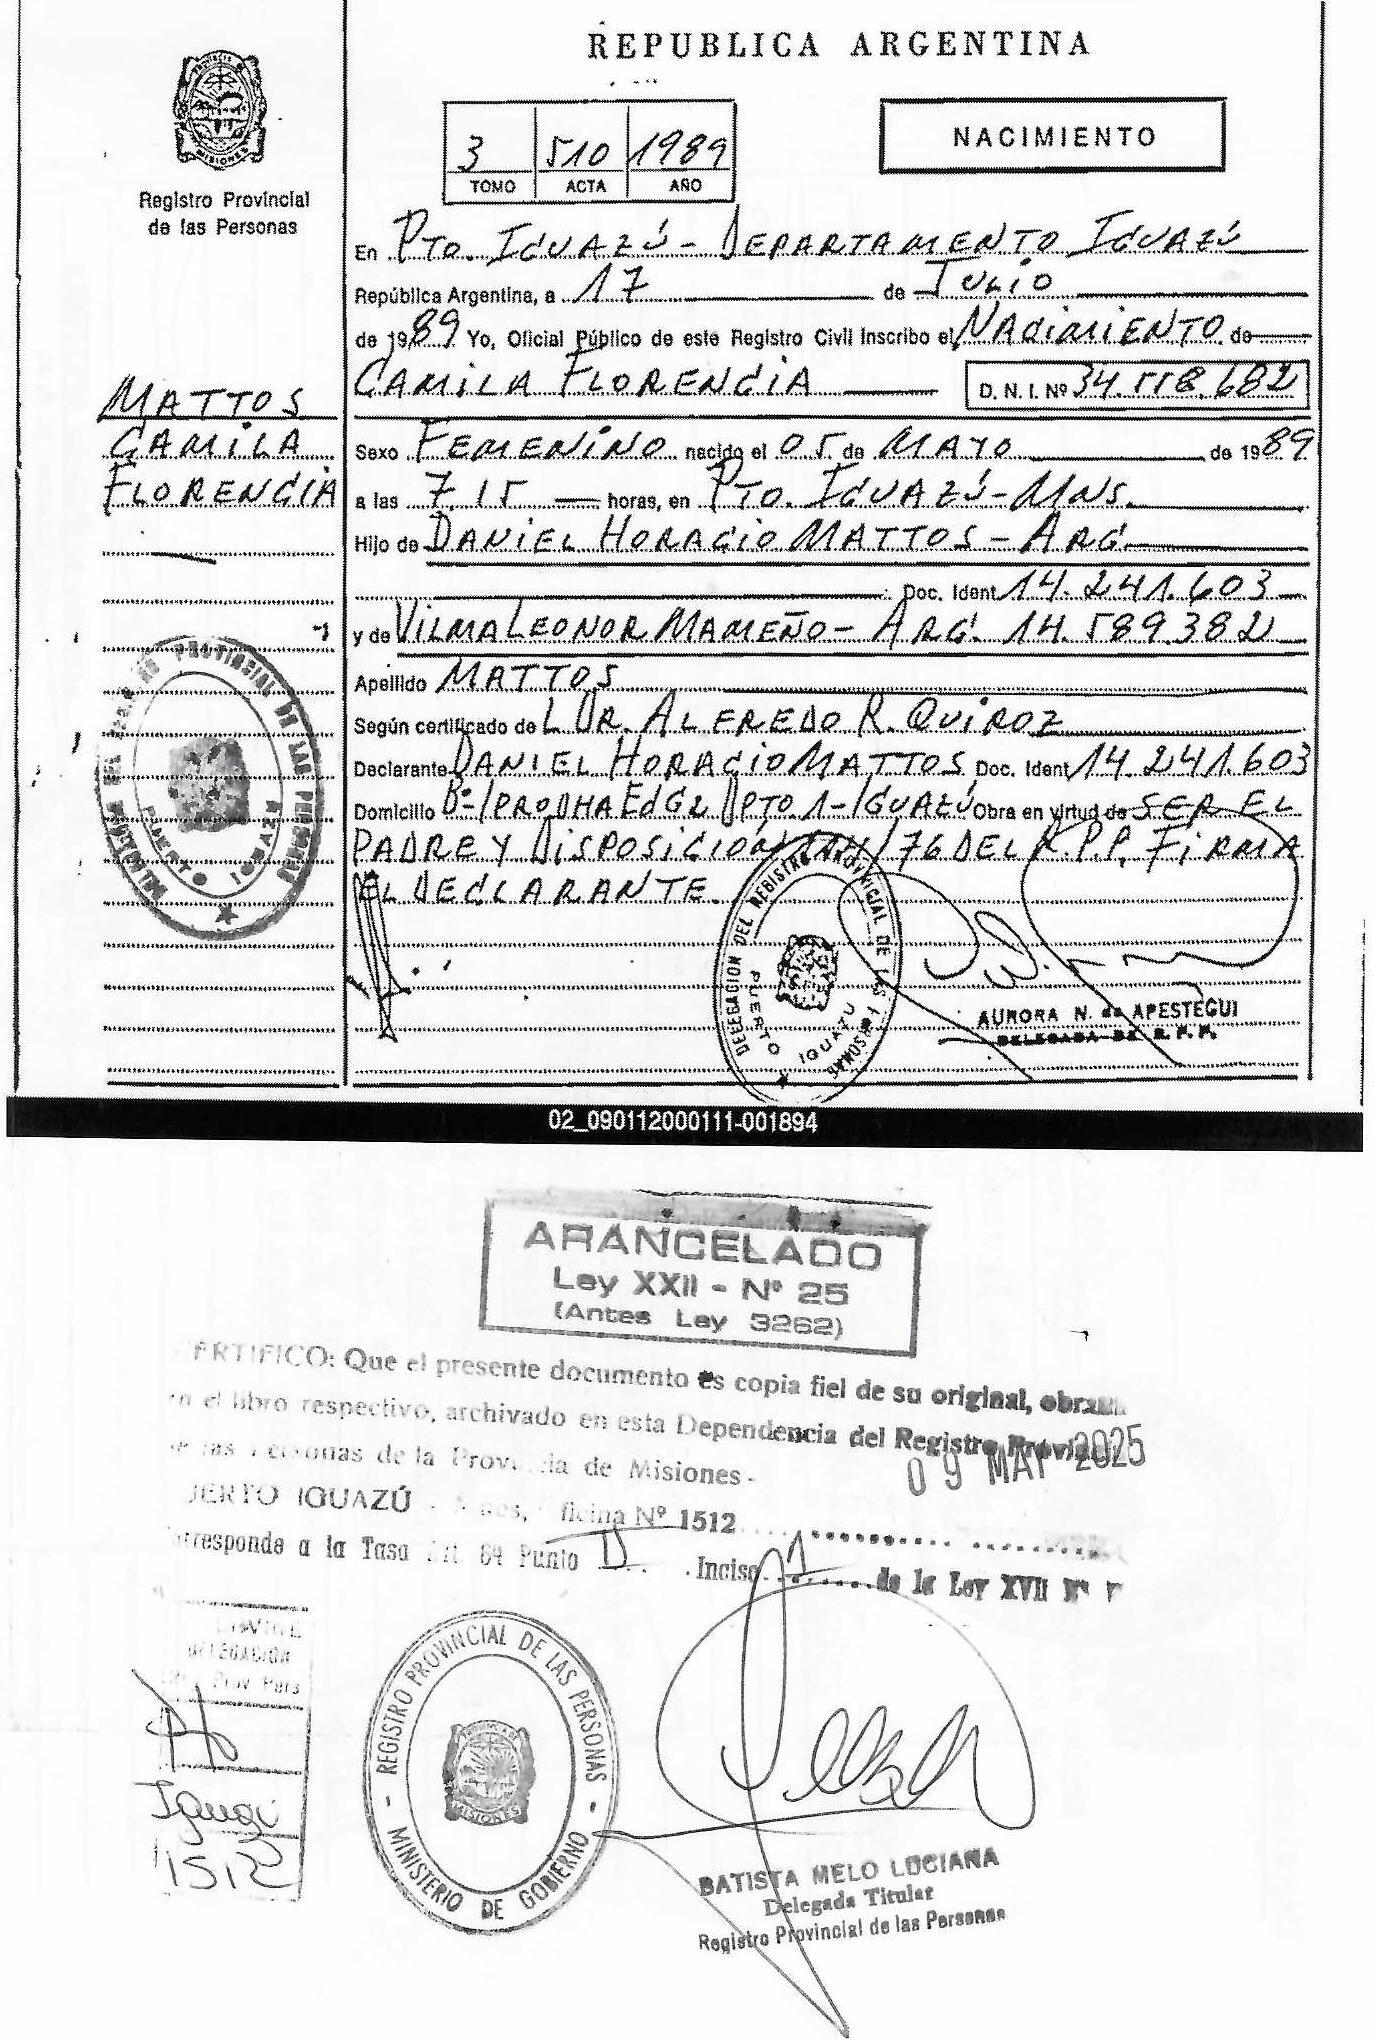 REPUBLICA ARGENTINA
MISIONES
Registro Provincial
de las Personas
3 510 1989
TOMO ACTA AÑO
NACIMIENTO
En PTO. IGUAZÚ - DEPARTAMENTO IGUAZÚ
República Argentina, a 17 de JULIO
de 1989 Yo, Oficial Público de este Registro Civil Inscribo el NACIMIENTO de
CAMILA FLORENCIA D. N. I. Nº 34.558.682
MATTOS
CAMILA
FLORENCIA
Sexo FEMENINO nacido el 05 de MAYO de 1989
a las 7.15 horas, en PTO. IGUAZÚ - MNS.
Hijo de DANIEL HORACIO MATTOS - ARG.
Doc. Ident 14.241.603
y de VILMA LEONOR MAMEÑO - ARG. 14.589.382
Apellido MATTOS
Según certificado de L DR. ALFREDO R. QUIROZ
Declarante DANIEL HORACIO MATTOS Doc. Ident 14.241.603
Domicilio Bº IPRODHA EDG2 DPTO. 1 - IGUAZÚ Obra en virtud de SER EL
PADRE Y DISPOSICIÓN /76 DEL R.P.P. FIRMA
EL DECLARANTE.
DELEGACION DEL REGISTRO PROVINCIAL DE LAS PERSONAS
PUERTO IGUAZU
AURORA N. de APESTEGUI
DELEGADA DE R. P. P.
02_090112000111-001894
ARANCELADO
Ley XXII - Nº 25
(Antes Ley 3262)
CERTIFICO: Que el presente documento es copia fiel de su original,
en el libro respectivo, archivado en esta Dependencia del Registro
de las Personas de la Provincia de Misiones -
09 MAY 2025
PUERTO IGUAZÚ Oficina Nº 1512
Corresponde a la Tasa Art. 64 Punto II Inciso 1 de la Ley XVII Nº
DELEGACION
Prov Pers
Iguazú
1512
REGISTRO PROVINCIAL DE LAS PERSONAS
MISIONES
MINISTERIO DE GOBIERNO
BATISTA MELO LUCIANA
Delegada Titular
Registro Provincial de las Personas